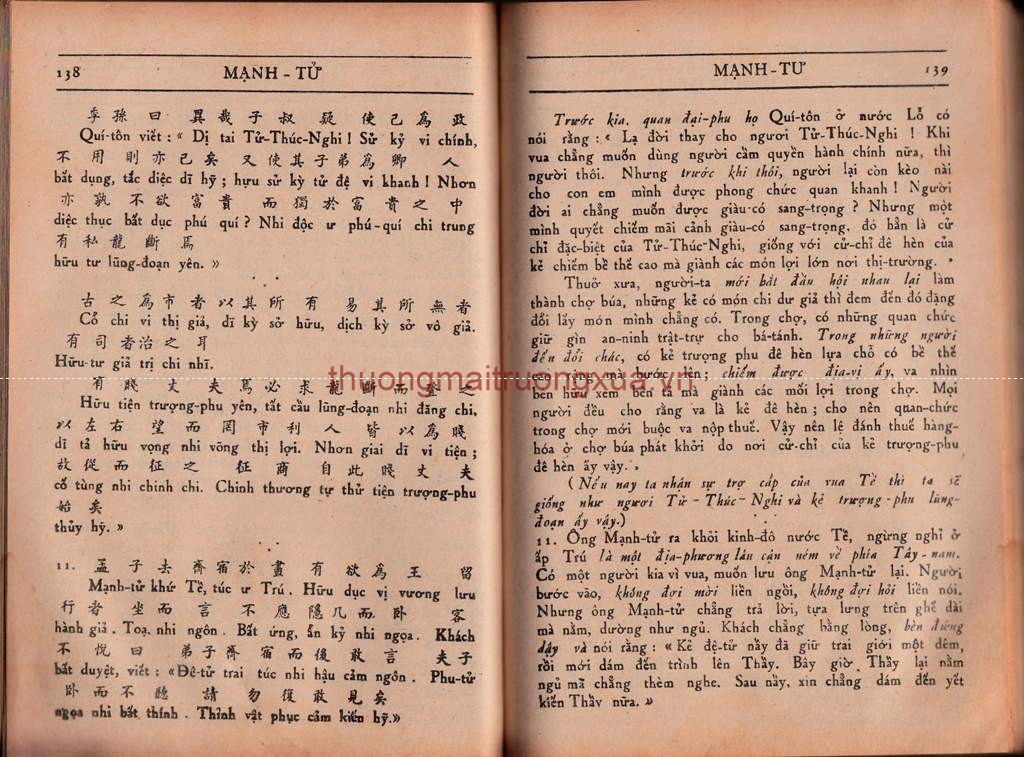 138 MẠNH - TỬ
季孫曰異哉子叔疑使己爲政
Quí-tôn viết : « Dị tai Tử-Thúc-Nghi ! Sử kỷ vi chính,
不用則亦已矣又使其子弟爲卿人
bất dụng, tắc diệc dĩ hỹ ; hựu sử kỳ tử đệ vi khanh ! Nhơn
亦孰不欲富貴而獨於富貴之中
diệc thục bất dục phú quí ? Nhi độc ư phú-quí chi trung
有私龍斷焉
hữu tư lũng-đoạn yên. »
古之爲市者以其所有易其所無者
Cổ chi vi thị giả, dĩ kỳ sở hữu, dịch kỳ sở vô giả.
有司者治之耳
Hữu-tư giả trị chi nhĩ.
有賤丈夫焉必求龍斷而登之
Hữu tiện trượng-phu yên, tất cầu lũng-đoạn nhi đăng chi,
以左右望而罔市利人皆以爲賤
dĩ tả hữu vọng nhi võng thị lợi. Nhơn giai dĩ vi tiện ;
故從而征之征商自此賤丈夫
cố tùng nhi chinh chi. Chinh thương tự thử tiện trượng-phu
始矣
thủy hỹ. »
11. 孟子去齊宿於晝有欲爲王留
Mạnh-tử khứ Tề, túc ư Trú. Hữu dục vị vương lưu
行者坐而言不應隱几而臥客
hành giả. Toạ nhi ngôn. Bất ứng, ẩn kỷ nhi ngọa. Khách
不悅曰弟子齊宿而後敢言夫子
bất duyệt, viết : «Đê-tử trai túc nhi hậu cảm ngôn. Phu-tử
臥而不聽請勿復敢見矣
ngọa nhi bất thính. Thỉnh vật phục cảm kiến hỹ.»
MẠNH-TƯ 139
Trước kia, quan đại-phu họ Quí-tôn ở nước Lỗ có
nói rằng : « Lạ đời thay cho ngươi Tử-Thúc-Nghi ! Khi
vua chẳng muốn dùng người cầm quyền hành chính nữa, thì
người thôi. Nhưng trước khi thôi, người lại còn kèo nài
cho con em mình được phong chức quan khanh ! Người
đời ai chẳng muốn được giàu-có sang-trọng ? Nhưng một
mình quyết chiếm mãi cảnh giàu-có sang-trọng, đó hẳn là cử
chỉ đặc-biệt của Tử-Thúc-Nghi, giống với cử-chỉ đê hèn của
kẻ chiếm bề thế cao mà giành các món lợi lớn nơi thị-trường.
Thuở xưa, người-ta mới bắt đầu hội nhau lại làm
thành chợ búa, những kẻ có món chi dư giả thì đem đến đó đặng
đổi lấy món mình chẳng có. Trong chợ, có những quan chức
giữ gìn an-ninh trật-trự cho bá-tánh. Trong những người
đến đổi chác, có kẻ trượng phu đê hèn lựa chỗ có bề thế
cao ráo mà bước lên ; chiếm được địa-vị ấy, va nhìn
bên hữu xem bên tả mà giành các mối lợi trong chợ. Mọi
người đều cho rằng va là kẻ đê hèn ; cho nên quan-chức
trong chợ mới buộc va nộp thuế. Vậy nên lệ đánh thuế hàng-
hóa ở chợ búa phát khởi do nơi cử-chỉ của kẻ trượng-phu
đê hèn ấy vậy. »
(Nếu nay ta nhận sự trợ cấp của vua Tề thì ta sẽ
giống như ngươi Tử-Thúc-Nghi và kẻ trượng-phu lũng-
đoạn ấy vậy.)
11. Ông Mạnh-tử ra khỏi kinh-đô nước Tề, ngừng nghỉ ở
ấp Trú là một địa-phương lân cận ném về phía Tây-nam.
Có một người kia vì vua, muốn lưu ông Mạnh-tử lại. Người
bước vào, không đợi mời liền ngồi, không đợi hỏi liền nói.
Nhưng ông Mạnh-tử chẳng trả lời, tựa lưng trên ghế dài
mà nằm, dường như ngủ. Khách chẳng bằng lòng, bèn đứng
dậy và nói rằng : « Kẻ đệ-tử nầy đã giữ trai giới một đêm,
rồi mới dám đến trình lên Thầy. Bây giờ Thầy lại nằm
ngủ mà chẳng thèm nghe. Sau nầy, xin chẳng dám đến yết
kiến Thầy nữa. »
thuongmaitruongxua.vn